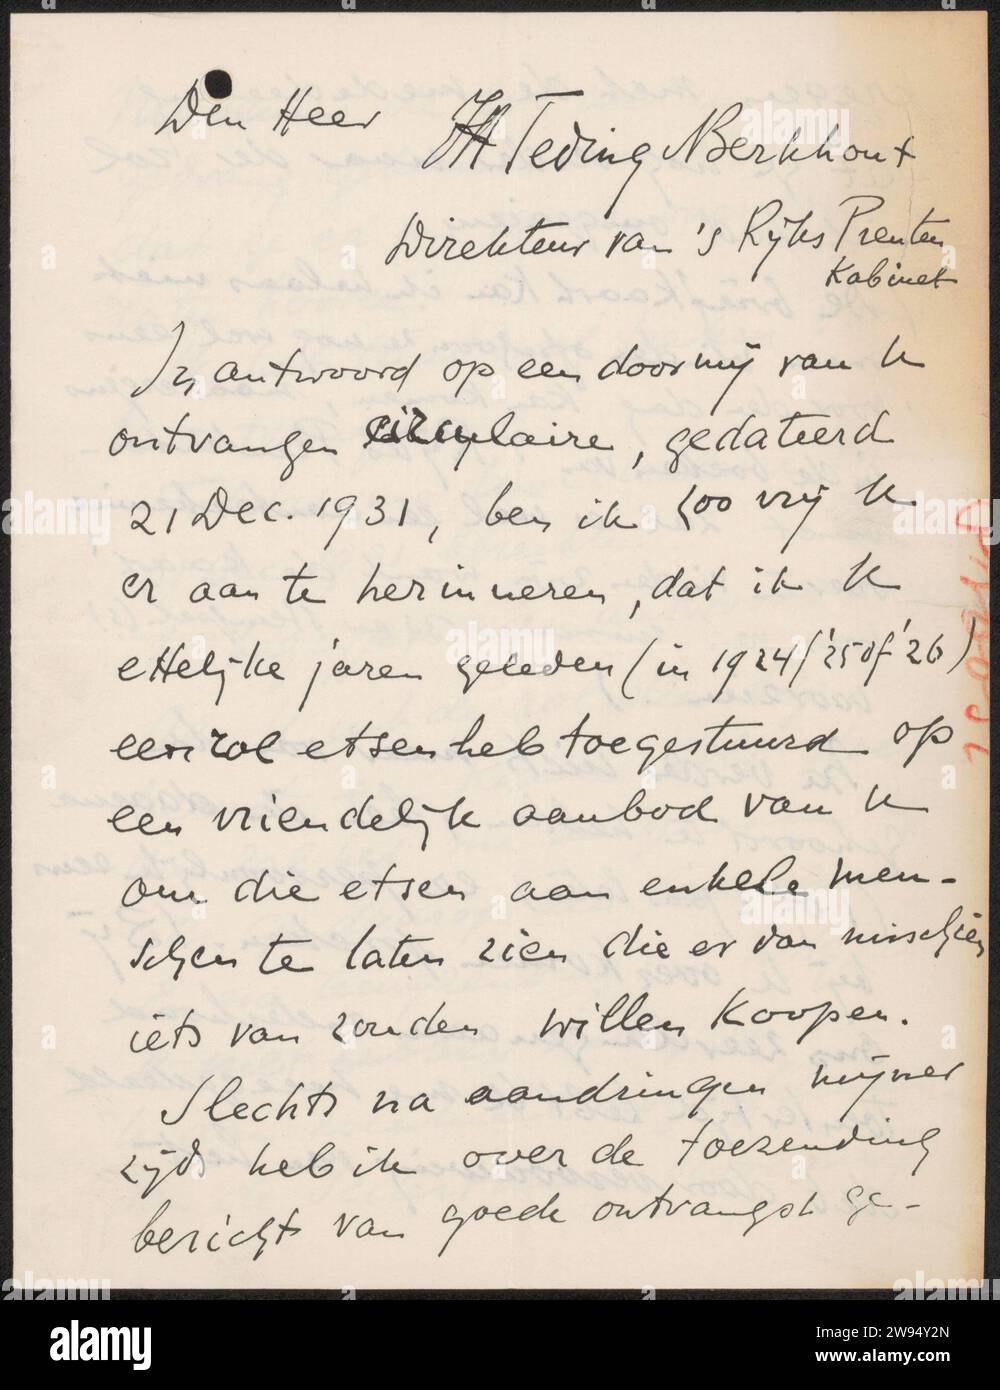 Den Heer
JH Teding v Berkhout
Direkteur van 's Rijks Prenten
Kabinet
In antwoord op een door mij van U
ontvangen circulaire, gedateerd
21 Dec. 1931, ben ik zoo vrij U
er aan te herinneren, dat ik U
ettelijke jaren geleden (in 1924/'25 of '26)
een rol etsen heb toegestuurd op
een vriendelijk aanbod van U
om die etsen aan enkele men-
schen te laten zien die er dan misschien
iets van zouden willen koopen.
Slechts na aandringen mijner
zijds heb ik over de toezending
bericht van goede ontvangst ge-
alamy
Image ID: 2W94Y2N
www.alamy.com